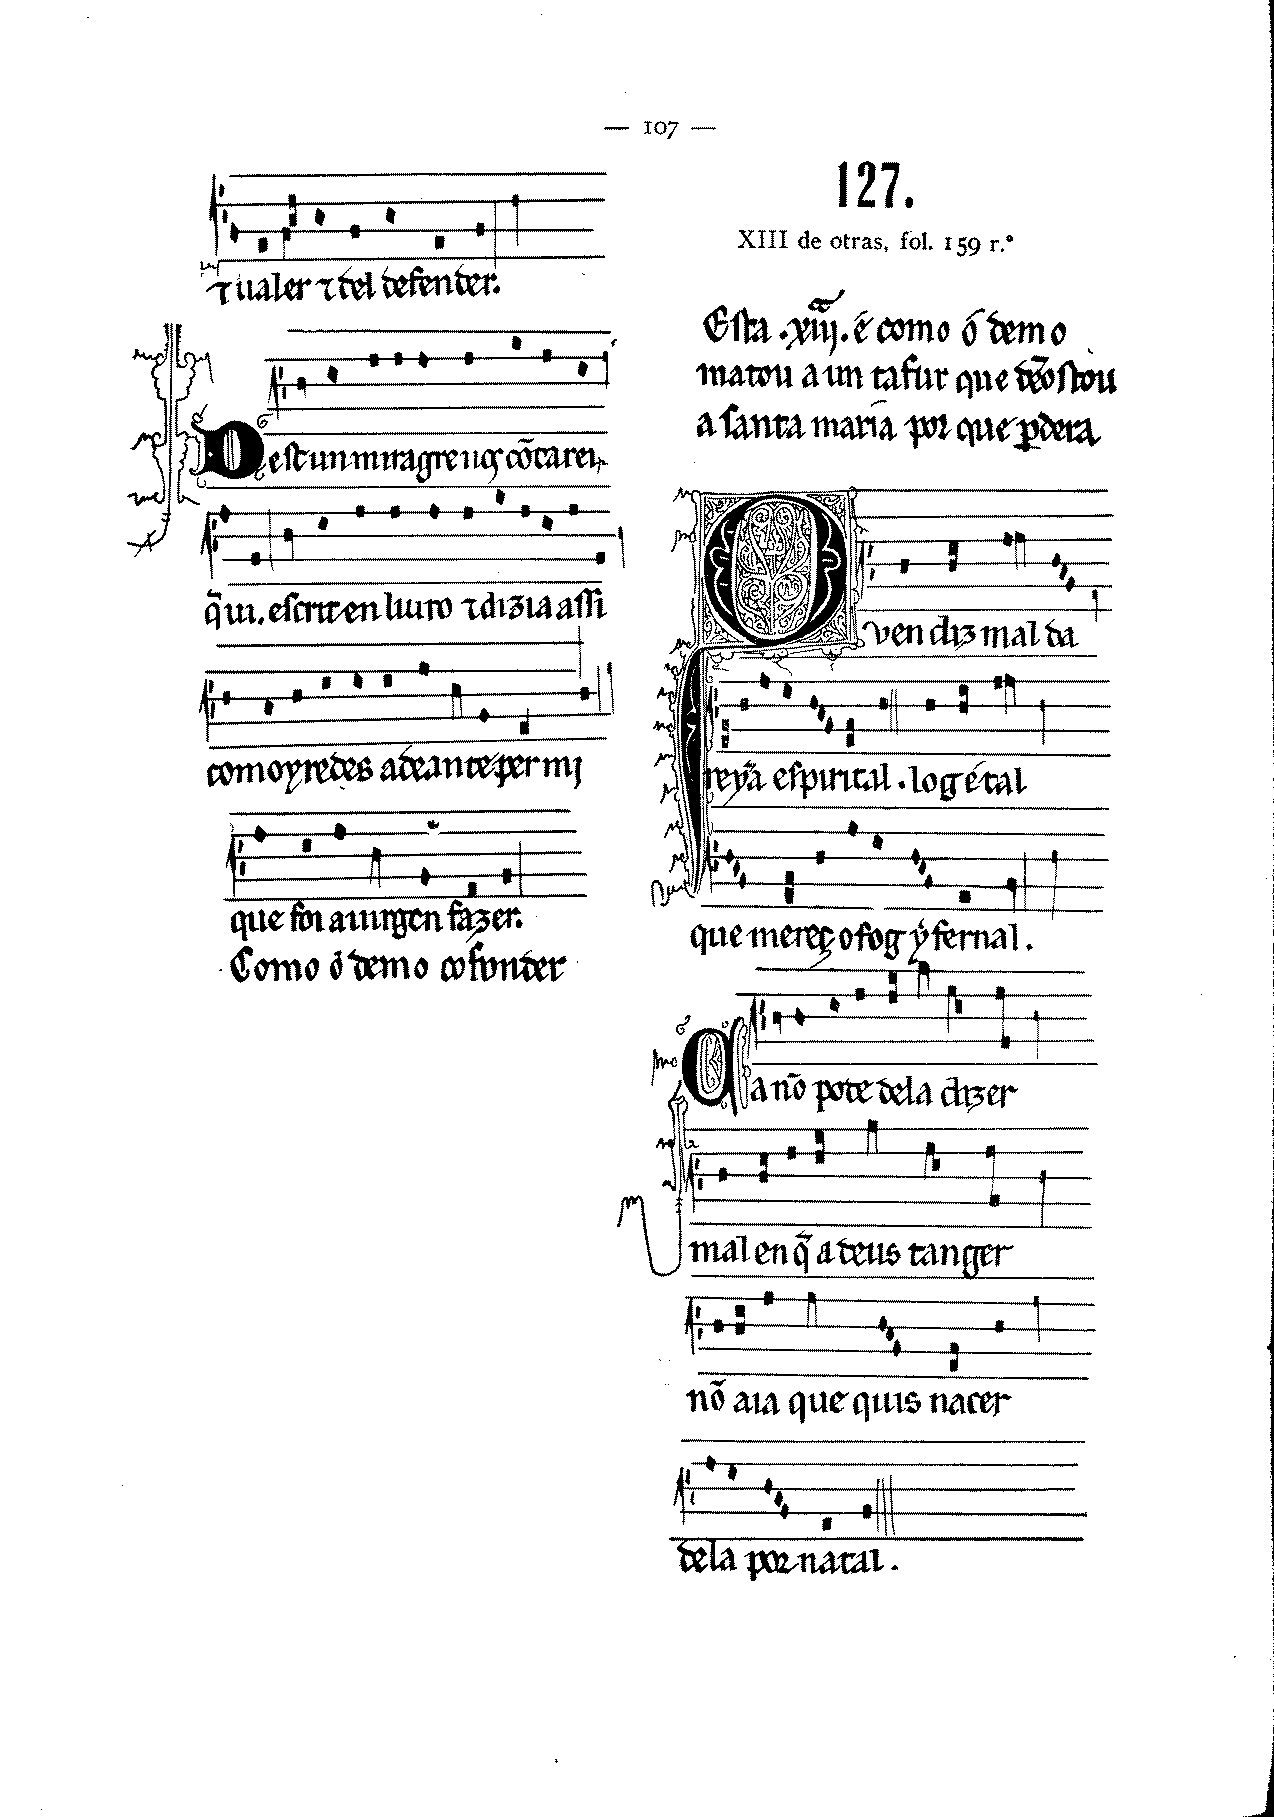 — 107 —
⁊ ualer ⁊ del defender.
Dest un miragre uos cõtarei,
q̃ ui. escrit en liuro ⁊ dizia assi
com oyredes adeante per mi
que foi a uirgen fazer.
Como o demo cõfonder
127.
XIII de otras, fol. 159 r.º
Esta .xiij. é como ó demo
matou a un tafur que dẽostou
a santa maria por que ꝑdera
Quen diz mal da
reỹa espirital . log é tal
que mereç o fog ỹfernal .
Ca nõ pode dela dizer
mal en q̃ a deus tanger
nõ aia que quis nacer
dela por natal .